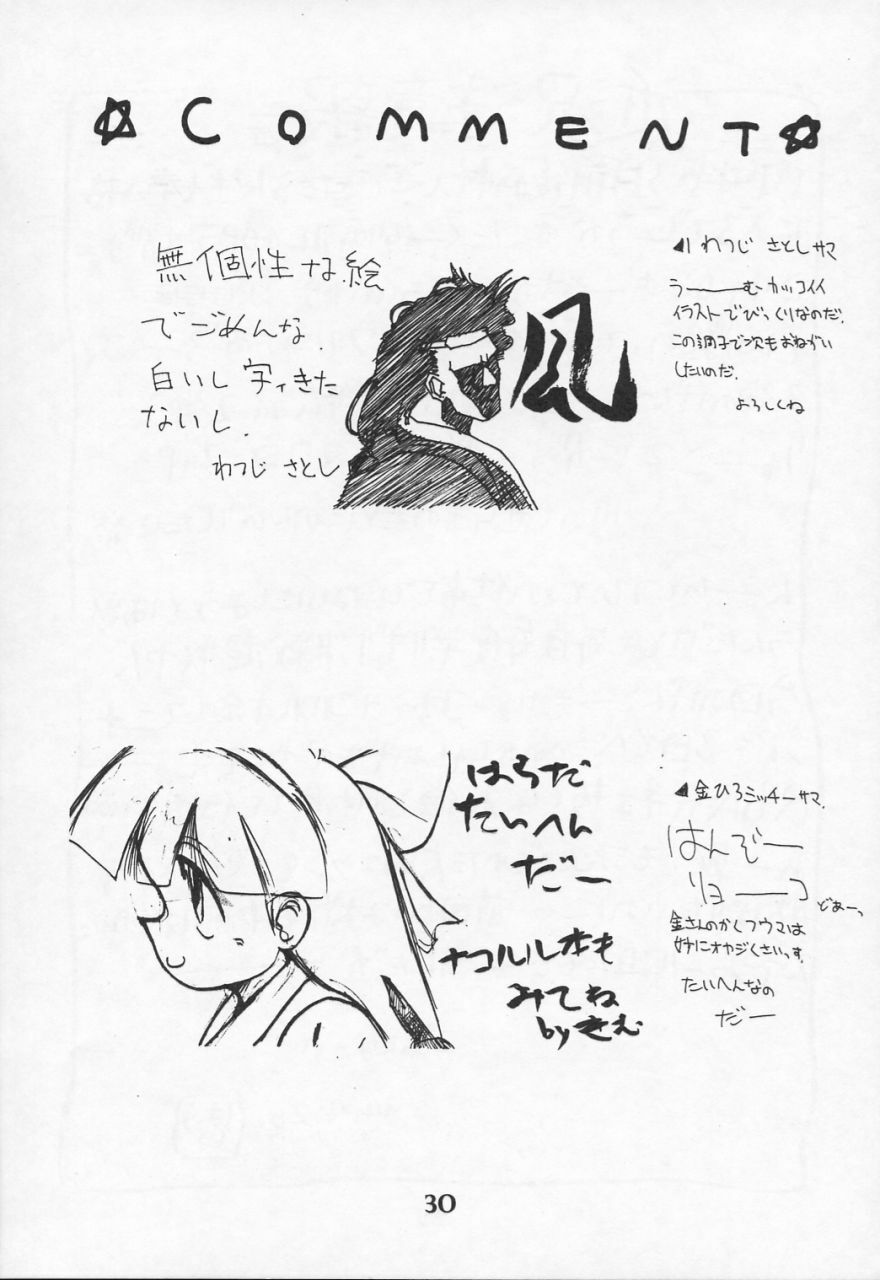 ☆COMMENT☆
無個性な絵
でごめんな.
白いし 字ィきた
ないし.
わつじ さとし
風
◀わつじ さとしサマ
うーーーむ カッコイイ
イラストでびっくりなのだ.
この調子で次もおねがい
したいのだ.
よろしくね
はらだ
たいへん
だー
ナコルル本も
みてね
byきむ
◀金ひろミッチーサマ.
はんぞー
リョーーコ
どあーっ
金さんのかくフウマは
妙にオヤジくさいっす.
たいへんなの
だー
30